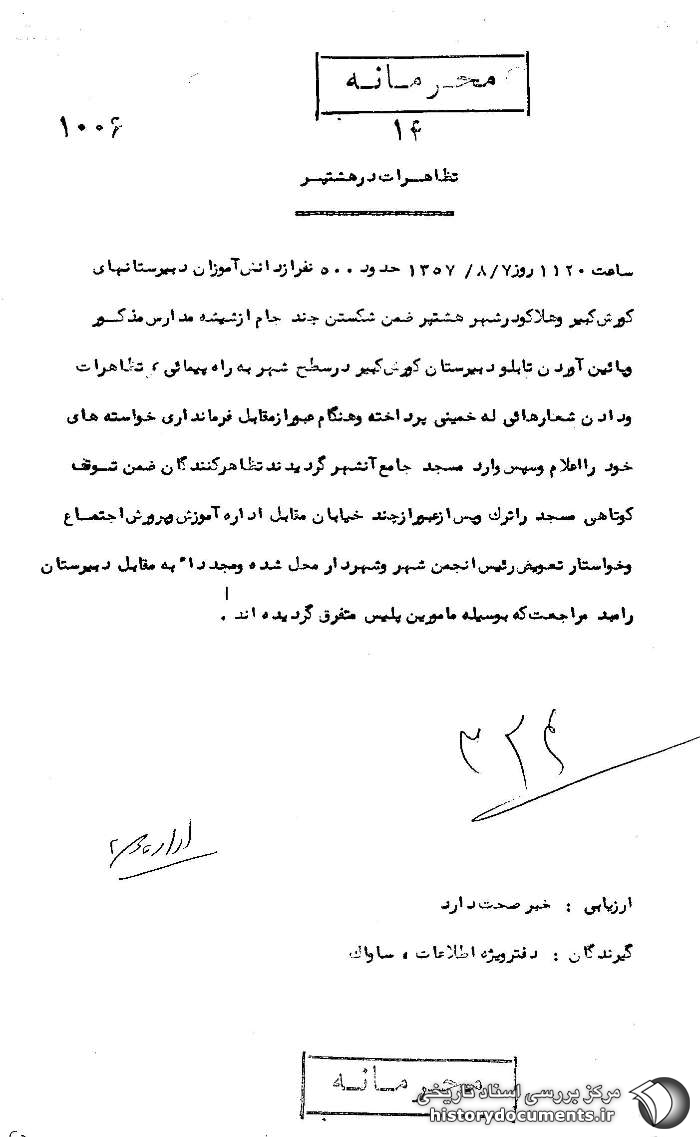 محرمانه
۱۴
۱۰۰۶
تظاهرات در هشتپر
ساعت ۱۱۲۰ روز ۱۳۵۷/۸/۷ حدود ۵۰۰ نفر از دانش‌آموزان دبیرستانهای
کورش کبیر و هلاکو در شهر هشتپر ضمن شکستن چند جام از شیشه مدارس مذکور
و پائین آوردن تابلو دبیرستان کورش کبیر در سطح شهر به راه پیمائی و تظاهرات
و دادن شعارهائی له خمینی پرداخته و هنگام عبور از مقابل فرمانداری خواسته های
خود را اعلام و سپس وارد مسجد جامع آنشهر گردیدند تظاهرکنندگان ضمن توقف
کوتاهی مسجد را ترك و پس از عبور از چند خیابان مقابل اداره آموزش و پرورش اجتماع
و خواستار تعویض رئیس انجمن شهر و شهردار محل شده و مجدداً به مقابل دبیرستان
مراجعت که بوسیله مامورین پلیس متفرق گردیده اند.
۳۲۴
ارزیابی : خبر صحت دارد
گیرندگان : دفتر ویژه اطلاعات ، ساواك
محرمانه
مرکز بررسی اسناد تاریخی
historydocuments.ir